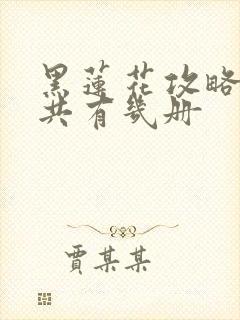 黑蓮花攻略
共有幾册
賈某某